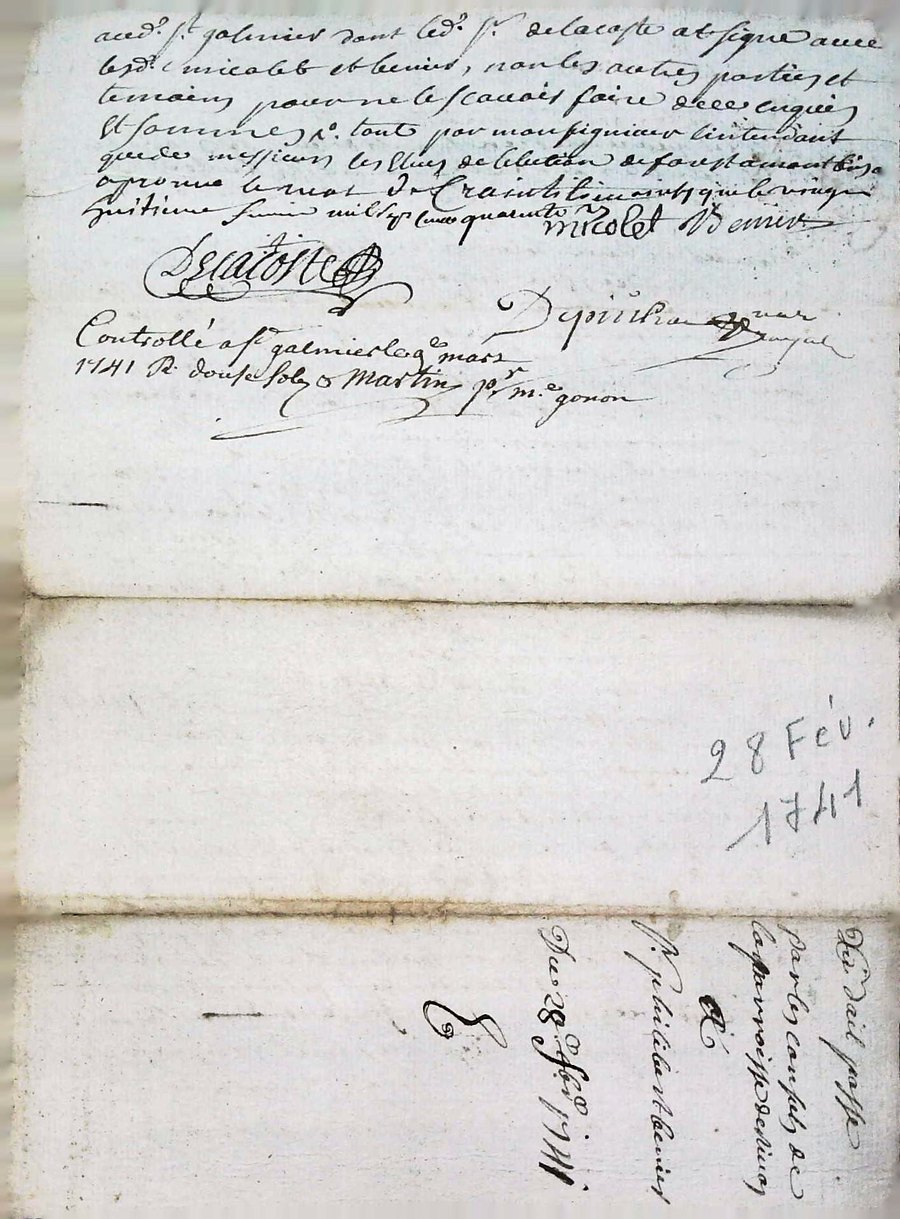 aud.t S.t galmier dont led.t S.r delacoste at signé avec
lesd. micolet et benier, non les autres parties et
temoins pour ne le scavoir faire de ce enquis
Et sommes tout par monsigniaur lintendant
que de messieurs les Elus de lelection de forest a montbrison
aprouve le mot de que le vingt
huitieme mil Sept Cens quarente
micolet Benier
Delacoste
Controllé a St galmier le mars
1741 R. douse Sols Martin p.r m.e gonon
28 Fév.
1741
bail passe
par les consuls de
la parroisse de
a
S.r philibert benier
Du 28.e fbr 1741